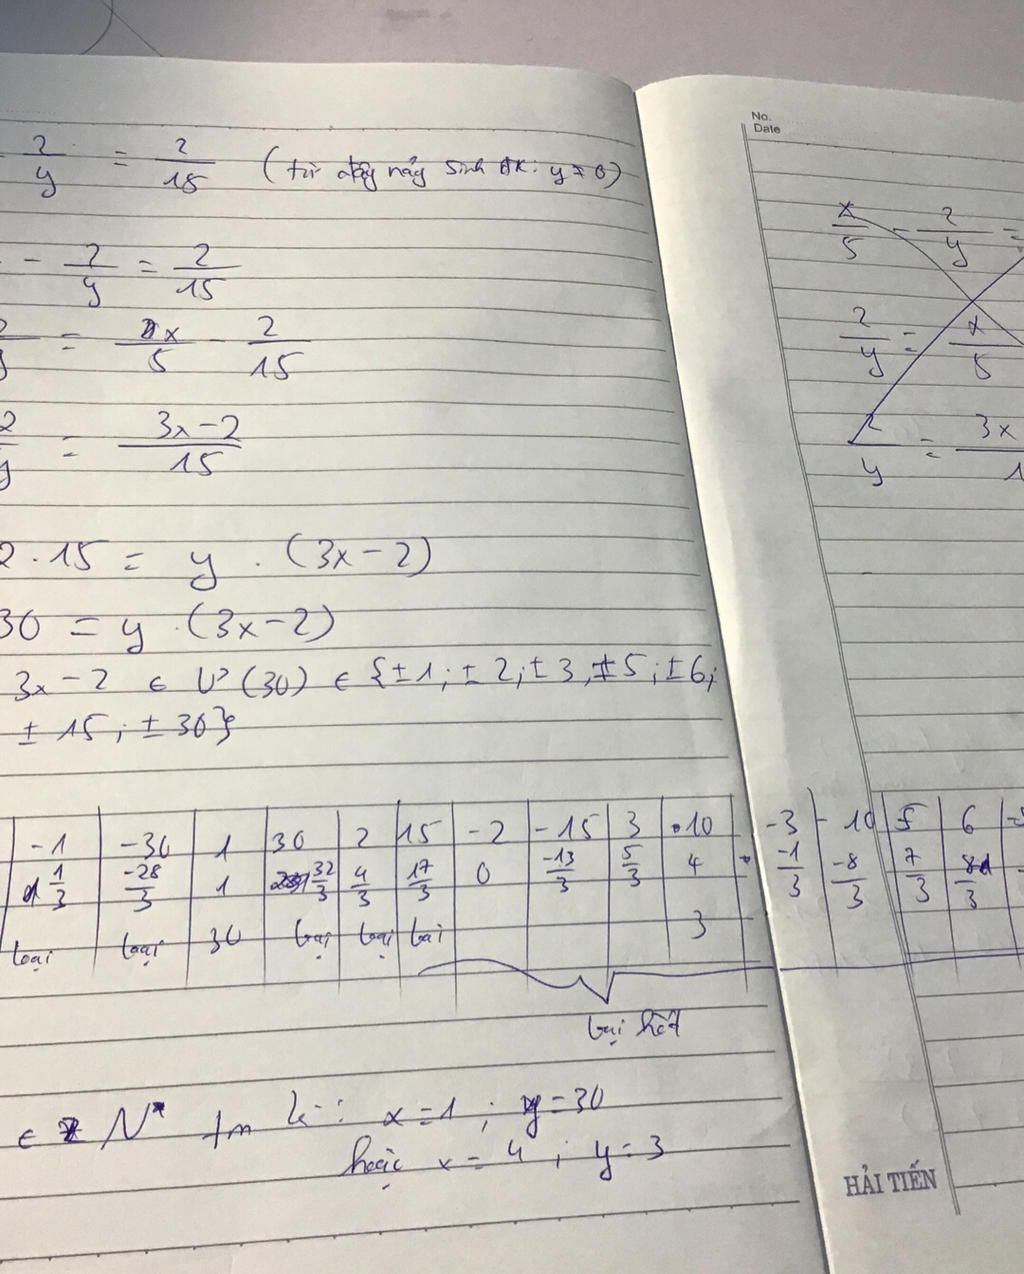 2/y = 2/15 (từ đây nảy sinh đk: y ≠ 0)
- 2/y = 2/15
2/y = x/5 - 2/15
2/y = 3x-2/15
2.15 = y . (3x-2)
30 = y .(3x-2)
3x-2 ∈ Ư(30) ∈ {±1; ±2; ±3, ±5; ±6;
± 15; ± 30}
-1 -30 1 30 2 15 -2 -15 3 10 -3 -10 5 6
1/3 -28/3 1 32/3 4/3 17/3 0 -13/3 5/3 4 -1/3 -8/3 7/3
loại loại 30 loại loại loại 3
loại hết
∈ N* tm là: x=1; y=30
hoặc x = 4; y = 3
No.
Date
x/5 - 2/y =
2/y = x/5
y = 3x
HẢI TIẾN